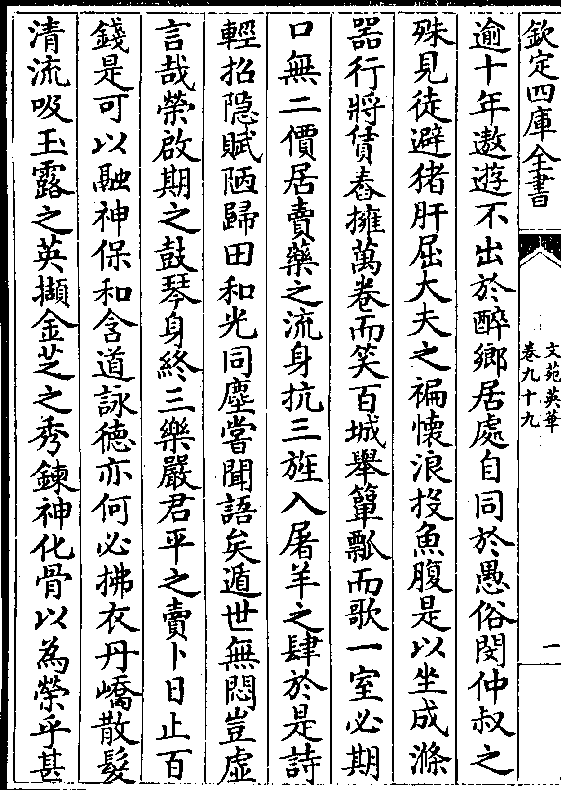 欽定四庫全書
文苑英華
卷九十九
一
逾十年遨遊不出於醉鄉居處自同於愚俗閔仲叔之
殊見徒避猪肝屈大夫之褊懷浪投魚腹是以坐成滌
器行將賃舂擁萬卷而笑百城舉簞瓢而歌一室必期
口無二價居賣藥之流身抗三旌入屠羊之肆於是詩
輕招隠賦陋歸田和光同塵嘗聞語矣遁世無悶豈虛
言哉榮啟期之鼓琴身終三樂嚴君平之賣卜日止百
錢是可以融神保和含道詠徳亦何必拂衣丹嶠散髮
清流吸玉露之英擷金芝之秀鍊神化骨以為榮乎甚